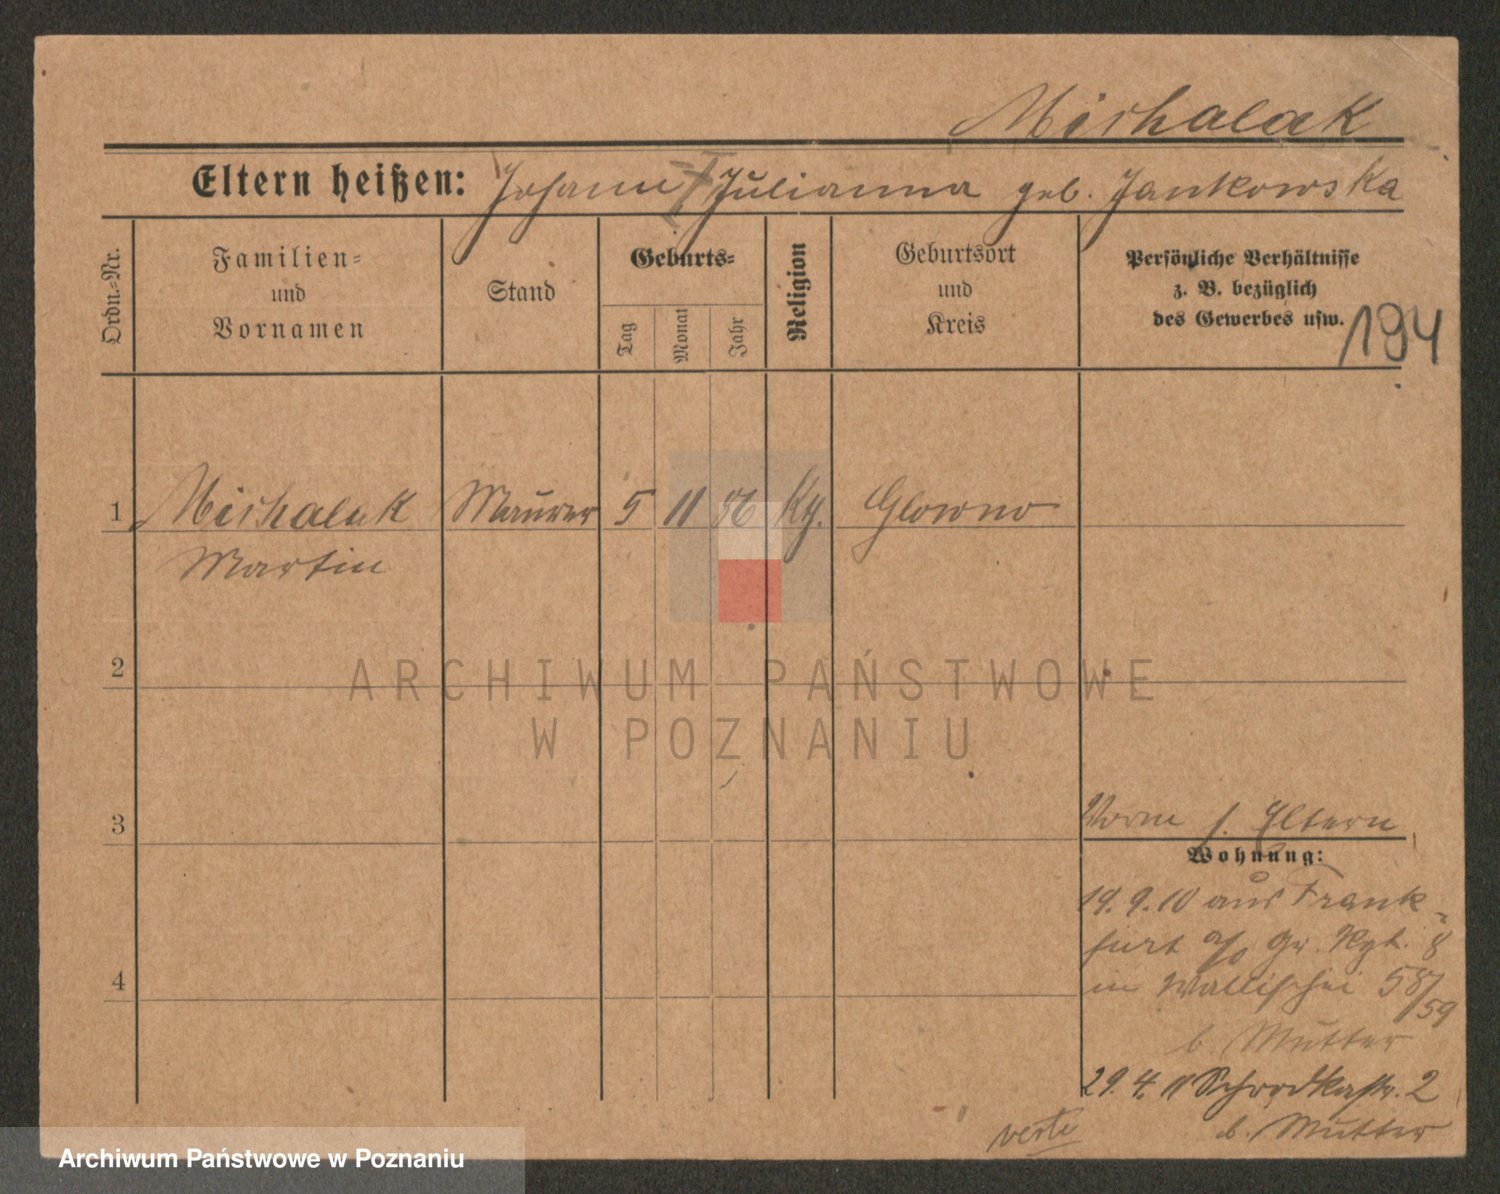 Michalak
Eltern heißen: Johann † Julianna geb. Jankowska
Ordn.-Nr.
Familien-
und
Vornamen
Stand
Geburts-
Tag
Monat
Jahr
Religion
Geburtsort
und
Kreis
Persönliche Verhältnisse
z. B. bezüglich
des Gewerbes usw.
194
1 Michalak Maurer 5 11 Kg. Glowno
Martin
2
ARCHIWUM PAŃSTWOWE
W POZNANIU
3
Vorm s. Eltern
Wohnung:
19.9.10 aus Frank-
furt a/o Gr. Rgt. 8
in Wallischei 58/59
b. Mutter
4
29.4.11 Schrodkastr. 2
b. Mutter
verte
Archiwum Państwowe w Poznaniu